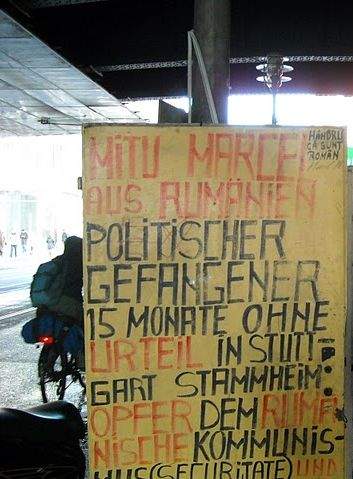 MITU MARCEL
AUS RUMÄNIEN
POLITISCHER
GEFANGENER
15 MONATE OHNE
URTEIL IN STUTT-
GART STAMMHEIM
OPFER DEM RUMÄ-
NISCHE KOMMUNIS-
MUS (SECURITATE) UND
MÂNDRU
CĂ SUNT
ROMÂN